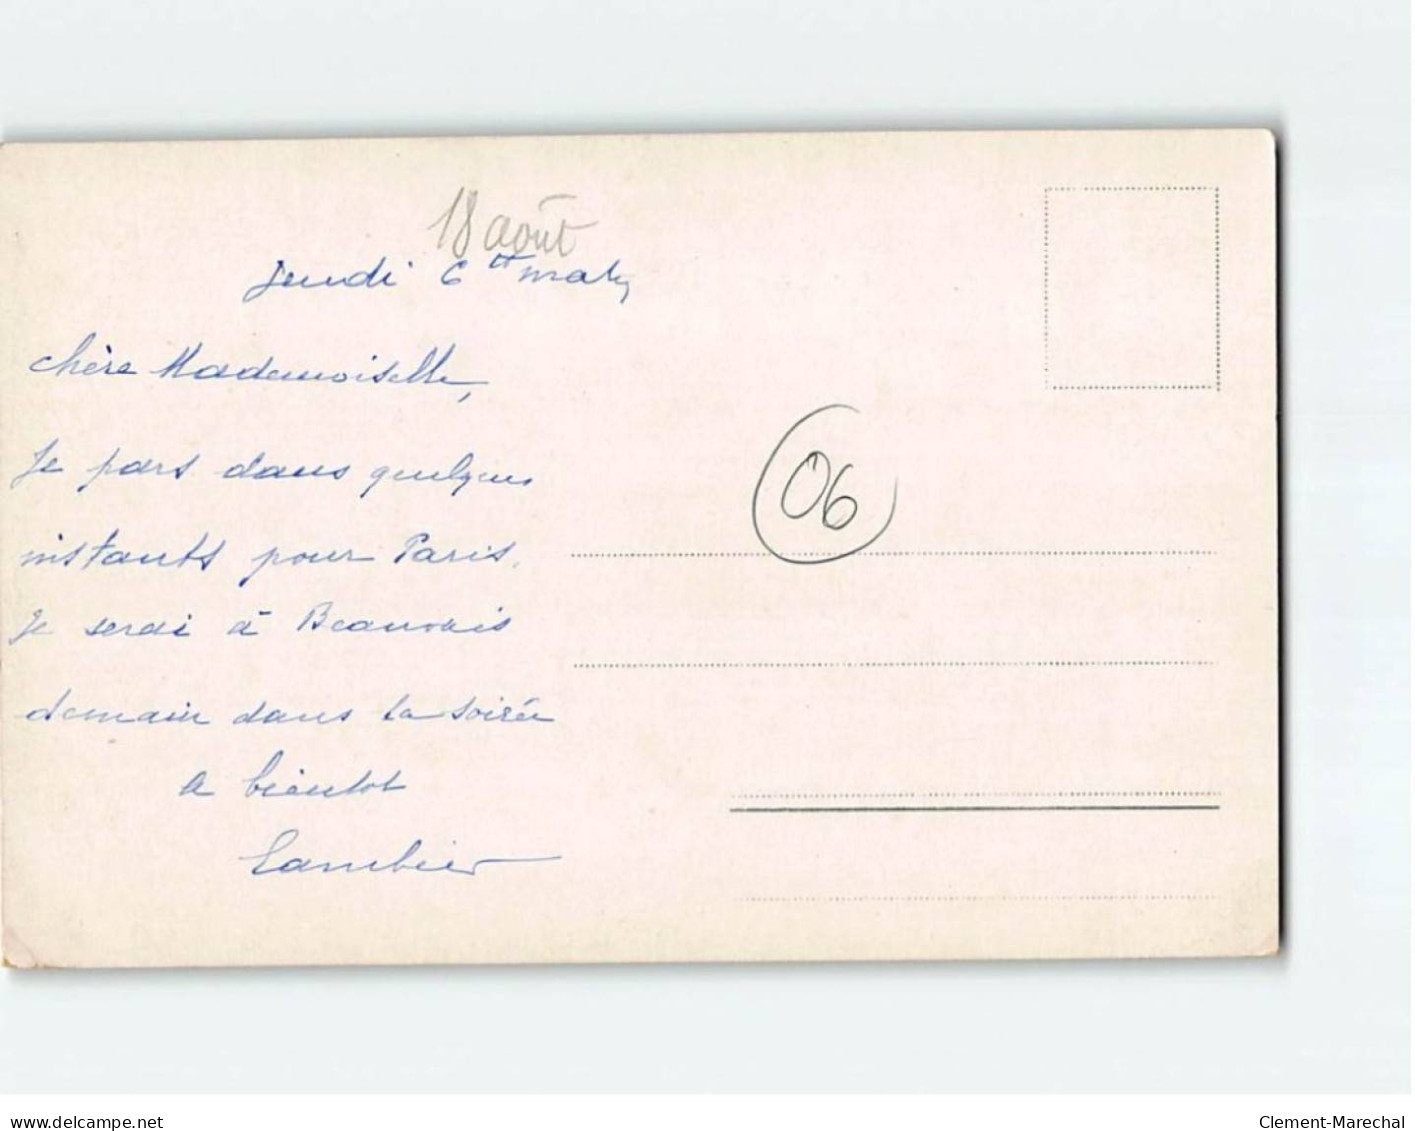 18 août
Jeudi 6 H matin
Chère Mademoiselle,
Je pars dans quelques
instants pour Paris.
Je serai à Beauvais
demain dans la soirée
a bientot
06
www.delcampe.net
Clement-Marechal